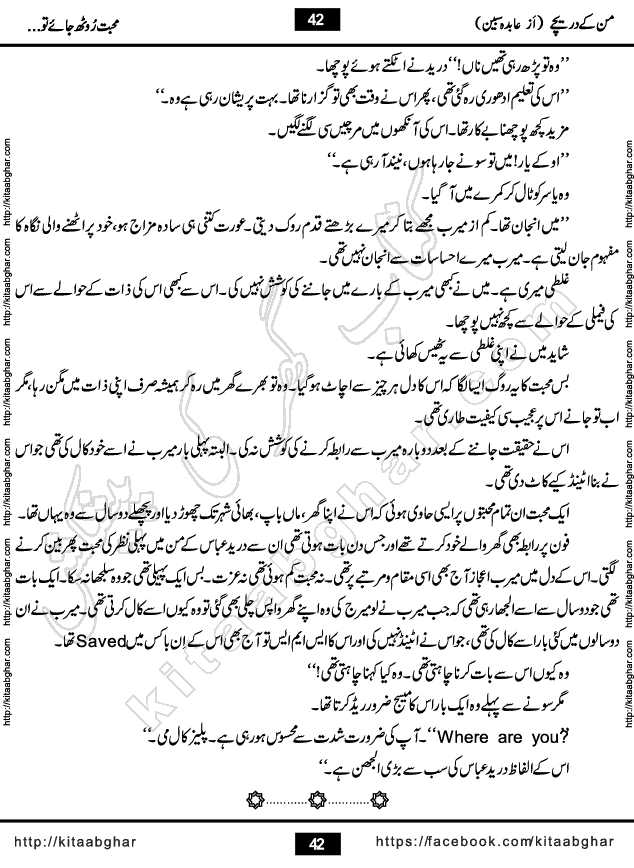 من کے دریچے (اَز عابدہ سبین) 42 محبت رُوٹھ جائے تو...
’’وہ تو پڑھ رہی تھیں ناں!‘‘ درید نے اٹکتے ہوئے پوچھا۔
’’اس کی تعلیم ادھوری رہ گئی تھی، پھر اس نے وقت بھی تو گزارنا تھا۔ بہت پریشان رہی ہے وہ۔‘‘
مزید کچھ پوچھنا بے کار تھا۔ اس کی آنکھوں میں مرچیں سی لگنے لگیں۔
’’اوکے یار! میں تو سونے جا رہا ہوں، نیند آ رہی ہے۔‘‘
وہ یاسر کو ٹال کر کمرے میں آ گیا۔
’’میں انجان تھا۔ کم از میرب مجھے بتا کر میرے بڑھتے قدم روک دیتی۔ عورت کتنی ہی سادہ مزاج ہو، خود پر اٹھنے والی نگاہ کا
مفہوم جان لیتی ہے۔ میرب میرے احساسات سے انجان نہیں تھی۔
غلطی میری ہے۔ میں نے کبھی میرب کے بارے میں جاننے کی کوشش نہیں کی۔ اس سے کبھی اس کی ذات کے حوالے سے اس
کی فیملی کے حوالے سے کچھ نہیں پوچھا۔
شاید میں نے اپنی غلطی سے یہ ٹھیس کھائی ہے۔
بس محبت کا یہ روگ ایسا لگا کہ اس کا دل ہر چیز سے اچاٹ ہو گیا۔ وہ تو بھرے گھر میں رہ کر ہمیشہ صرف اپنی ذات میں مگن رہا، مگر
اب تو جانے اس پر عجیب سی کیفیت طاری تھی۔
اس نے حقیقت جاننے کے بعد دوبارہ میرب سے رابطہ کرنے کی کوشش نہ کی۔ البتہ پہلی بار میرب نے اسے خود کال کی تھی جو اس
نے بنا اٹینڈ کیے کاٹ دی تھی۔
ایک محبت ان تمام محبتوں پر ایسی حاوی ہوئی کہ اس نے اپنا گھر، ماں باپ، بھائی شہر تک چھوڑ دیا اور پچھلے دو سال سے وہ یہاں تھا۔
فون پر رابطہ بھی گھر والے خود کرتے تھے اور جس دن بات ہوتی تھی ان سے درید عباس کے من میں پہلی نظر کی محبت پھر بین کرنے
لگتی۔ اس کے دل میں میرب اعجاز آج بھی اسی مقام و مرتبے پر تھی۔ نہ محبت کم ہوئی تھی نہ عزت۔ بس ایک پہیلی تھی جو وہ سلجھا نہ سکا۔ ایک بات
تھی جو دو سال سے اسے الجھا رہی تھی کہ جب میرب نے لو میرج کی وہ اپنے گھر واپس چلی بھی گئی تو وہ کیوں اسے کال کرتی تھی۔ میرب نے ان
دو سالوں میں کئی بار اسے کال کی تھی، جو اس نے اٹینڈ نہیں کی اور اس کا ایس ایم ایس تو آج بھی اس کے اِن باکس میں Saved تھا۔
وہ کیوں اس سے بات کرنا چاہتی تھی۔ وہ کیا کہنا چاہتی تھی!‘‘
مگر سونے سے پہلے وہ ایک بار اس کا میسج ضرور ریڈ کرتا تھا۔
’’Where are you?‘‘۔ آپ کی ضرورت شدت سے محسوس ہو رہی ہے۔ پلیز کال می۔‘‘
اس کے الفاظ درید عباس کی سب سے بڑی الجھن ہے۔‘‘
http://kitaabghar 42 https://facebook.com/kitaabghar
http://kitaabghar.com http://kitaabghar.com http://kitaabghar.com http://kitaabghar.com http://kitaabghar.com http://kitaabghar.com
http://kitaabghar.com http://kitaabghar.com http://kitaabghar.com http://kitaabghar.com http://kitaabghar.com http://kitaabghar.com
کتاب گھر کی پیشکش
kitaabghar.com